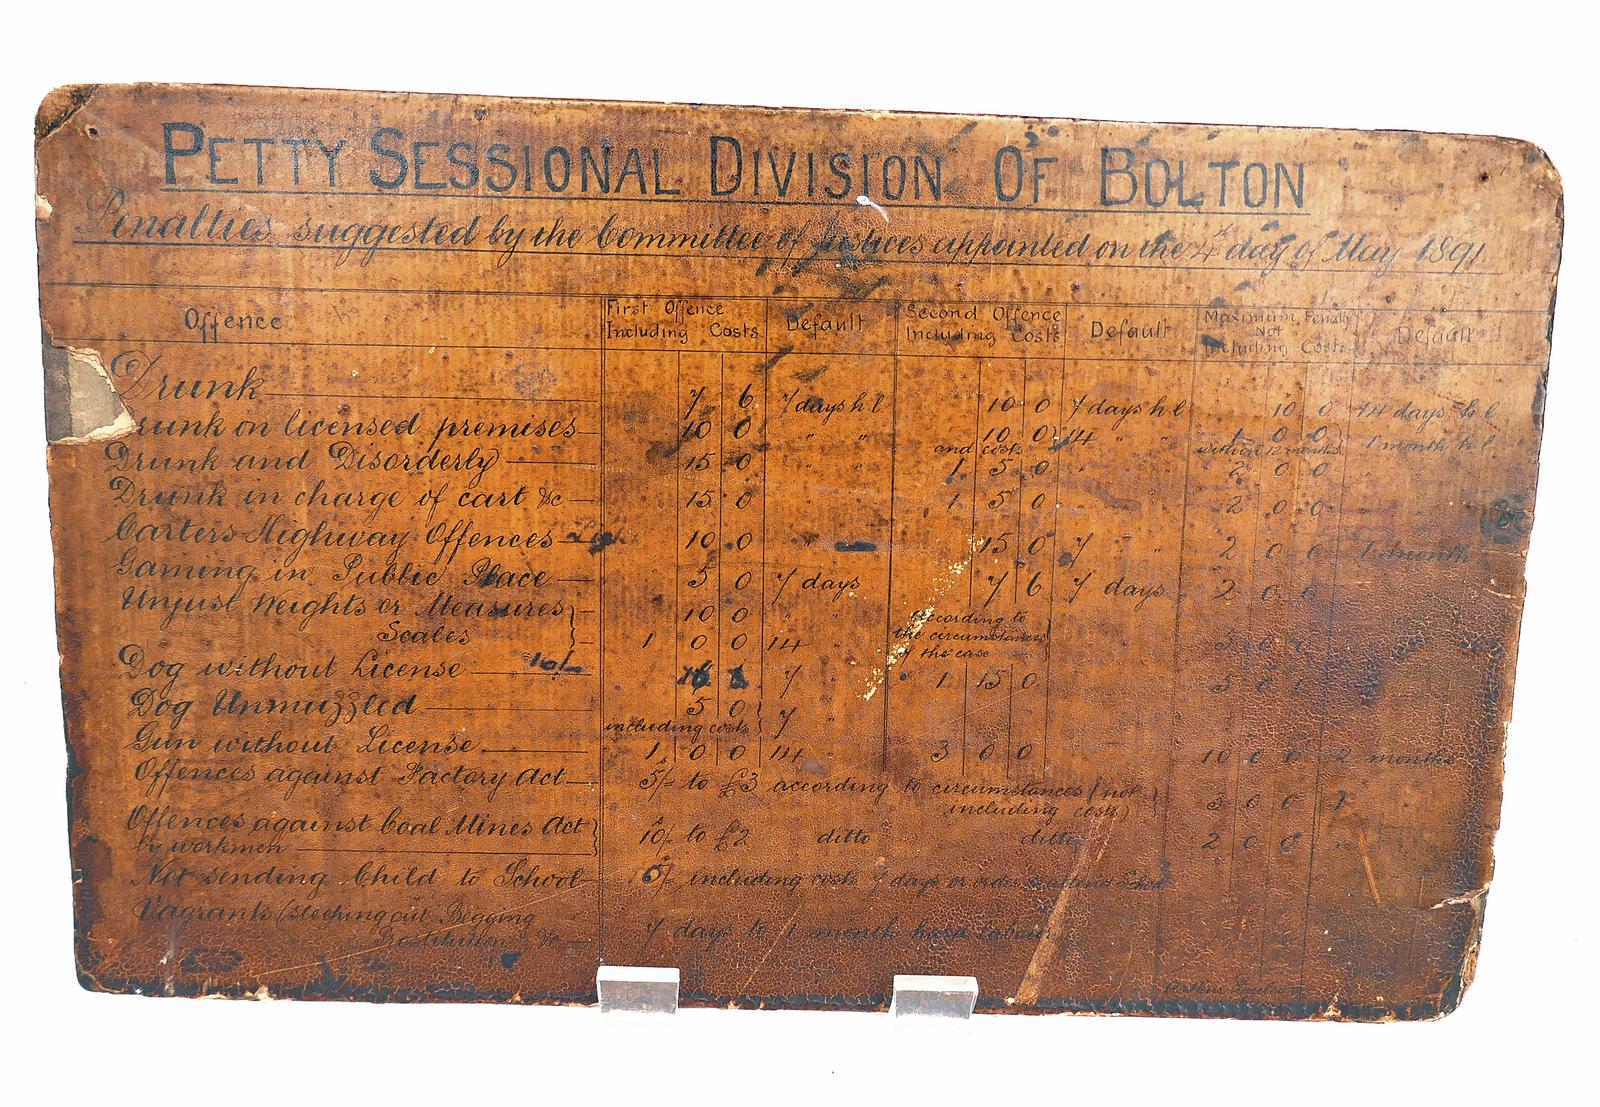 PETTY SESSIONAL DIVISION OF BOLTON
Penalties suggested by the Committee of Justices appointed on the 4th day of May 1891
Offence First Offence Including Costs Default Second Offence Including Costs Default Maximum Penalty Not Including Costs Default
Drunk 7 6 7 days h.l 10 0 7 days h l 10 0 14 days h l
Drunk on licensed premises 10 0 " " 10 0 and costs 14 " " 1 0 0 within 12 months 1 month h l
Drunk and Disorderly 15 0 1 5 0 " " 2 0 0 "
Drunk in charge of cart &c 15 0 " " 1 5 0 " " 2 0 0 "
Carters Highway Offences 10 0 " 15 0 7 " " 2 0 0 1 month
Gaming in Public Place 5 0 7 days 7 6 7 days 2 0 0
Unjust Weights or Measures 10 0 " " According to
Scales 1 0 0 14 " the circumstances of the case 5 0 0
Dog without License 10/- 7 " 1 15 0 5 0 0
Dog Unmuzzled 5 0 including costs 7 "
Gun without License 1 0 0 14 " 3 0 0 10 0 0 2 months
Offences against Factory Act 5/- to £3 according to circumstances (not including costs) 3 0 0 "
Offences against Coal Mines Act by workmen 10/- to £2 ditto ditto 2 0 0 "
Not sending Child to School 5/- including costs 7 days or order to attend School
Vagrants (sleeping out Begging
Prostitution &c 7 days to 1 month hard labour